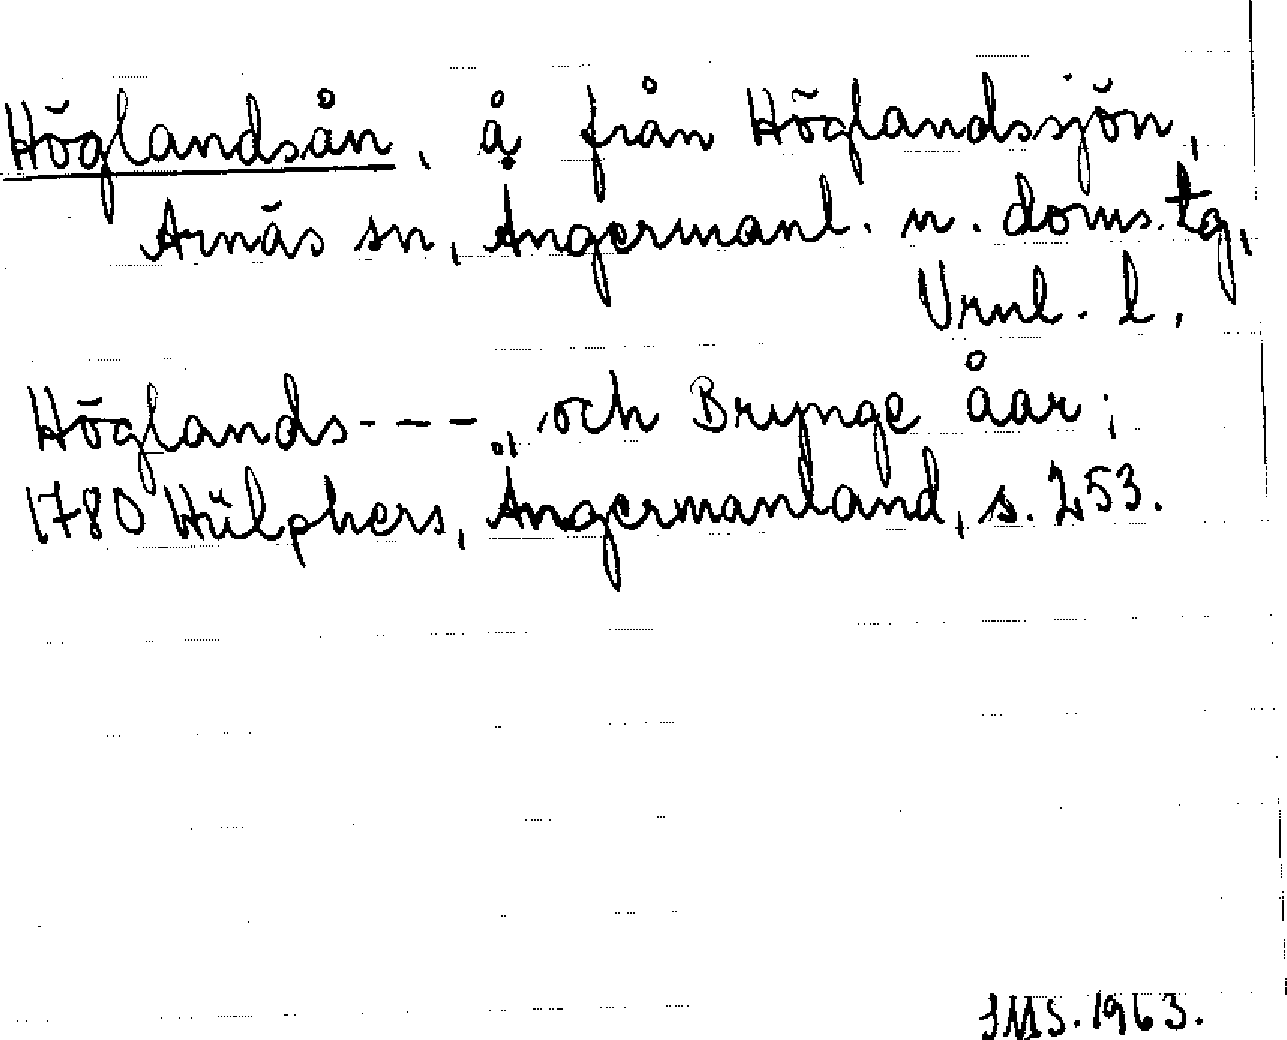 Höglandsån, å från Höglandssjön,
Arnäs sn, Ångermanl. n. doms. tg,
Vrnl. l.
Höglands--- och Brynge åar;
1780 Hülphers, Ångermanland, s. 253.
JMS. 1963.